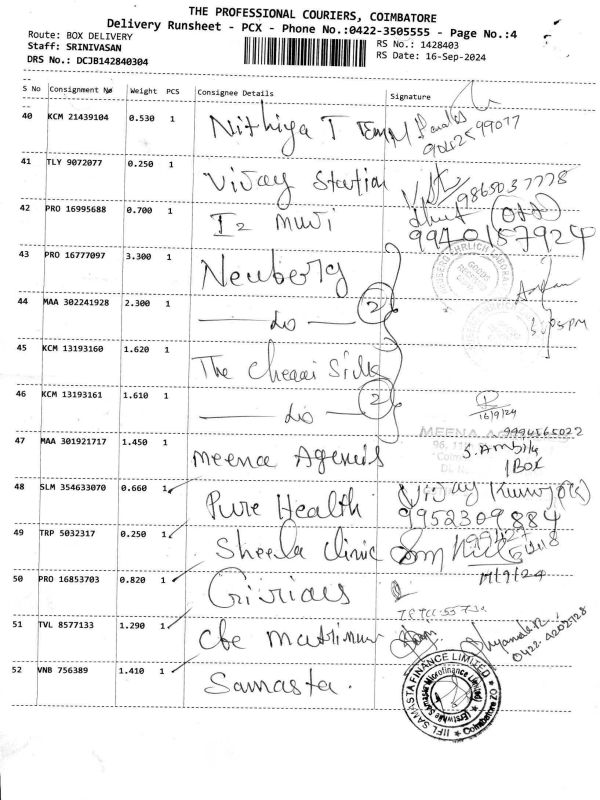 THE PROFESSIONAL COURIERS, COIMBATORE
Delivery Runsheet - PCX - Phone No.:0422-3505555 - Page No.:4
Route: BOX DELIVERY
Staff: SRINIVASAN
RS No.: 1428403
DRS No.: DCJB142840304
RS Date: 16-Sep-2024
S No Consignment No Weight PCS Consignee Details Signature
40 KCM 21439104 0.530 1 Nithiya T
9042599077
41 TLY 9072077 0.250 1 Vijay Station 9865037778
42 PRO 16995688 0.700 1 I2
9940157924
43 PRO 16777097 3.300 1 Neuberg
44 MAA 302241928 2.300 1 — Do — 2
45 KCM 13193160 1.620 1 The Chennai Silks
46 KCM 13193161 1.610 1 — Do — 2
16/9/24
47 MAA 301921717 1.450 1 Meena Agencies
MEENA
9994565022
S. Ambika
1 Box
48 SLM 354633070 0.660 1 Pure Health Vijay Kumar
9952309884
49 TRP 5032317 0.250 1 Sheela Clinic
50 PRO 16853703 0.820 1
51 TVL 8577133 1.290 1 Cbe
0422-4202128
52 VNB 756389 1.410 1 Samasta.
IIFL SAMASTA FINANCE LIMITED
(Erstwhile Samasta Microfinance Limited)
Coimbatore